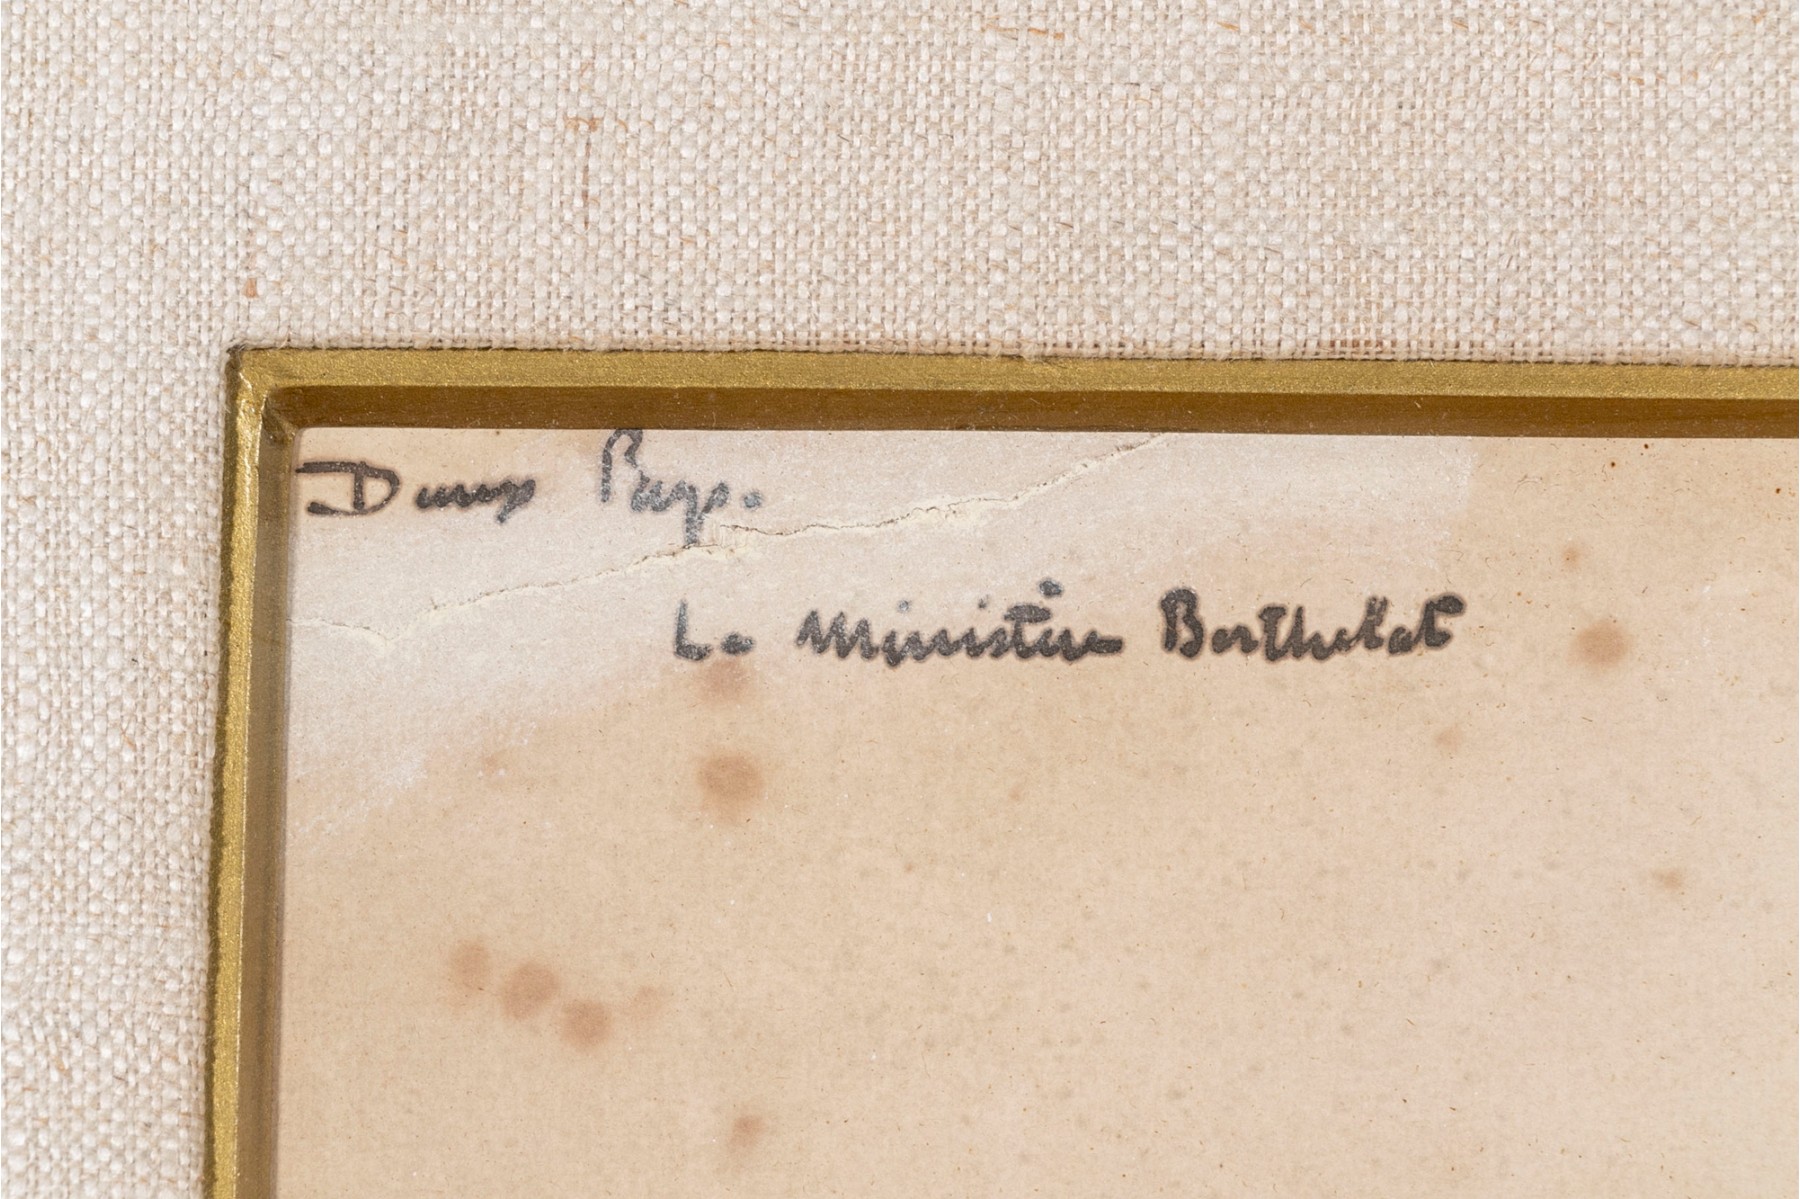 Deux Pays.
Le Ministère Berthelot